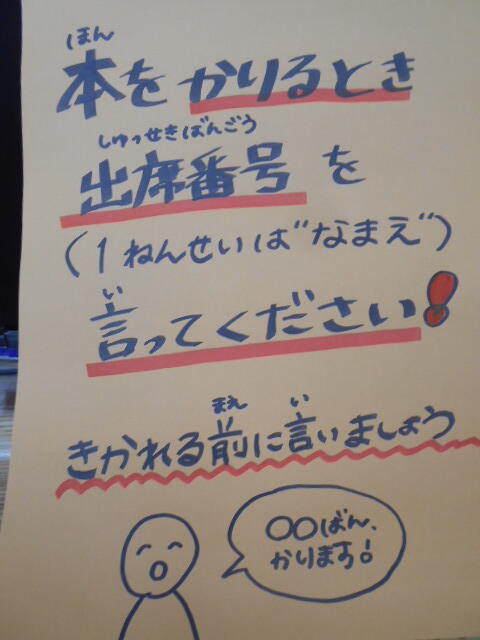 ほん
本をかりるとき
しゅっせきばんごう
出席番号を
(1ねんせいは"なまえ")
い
言ってください!
まえ い
きかれる前に言いましょう
〇〇ばん、
かります!